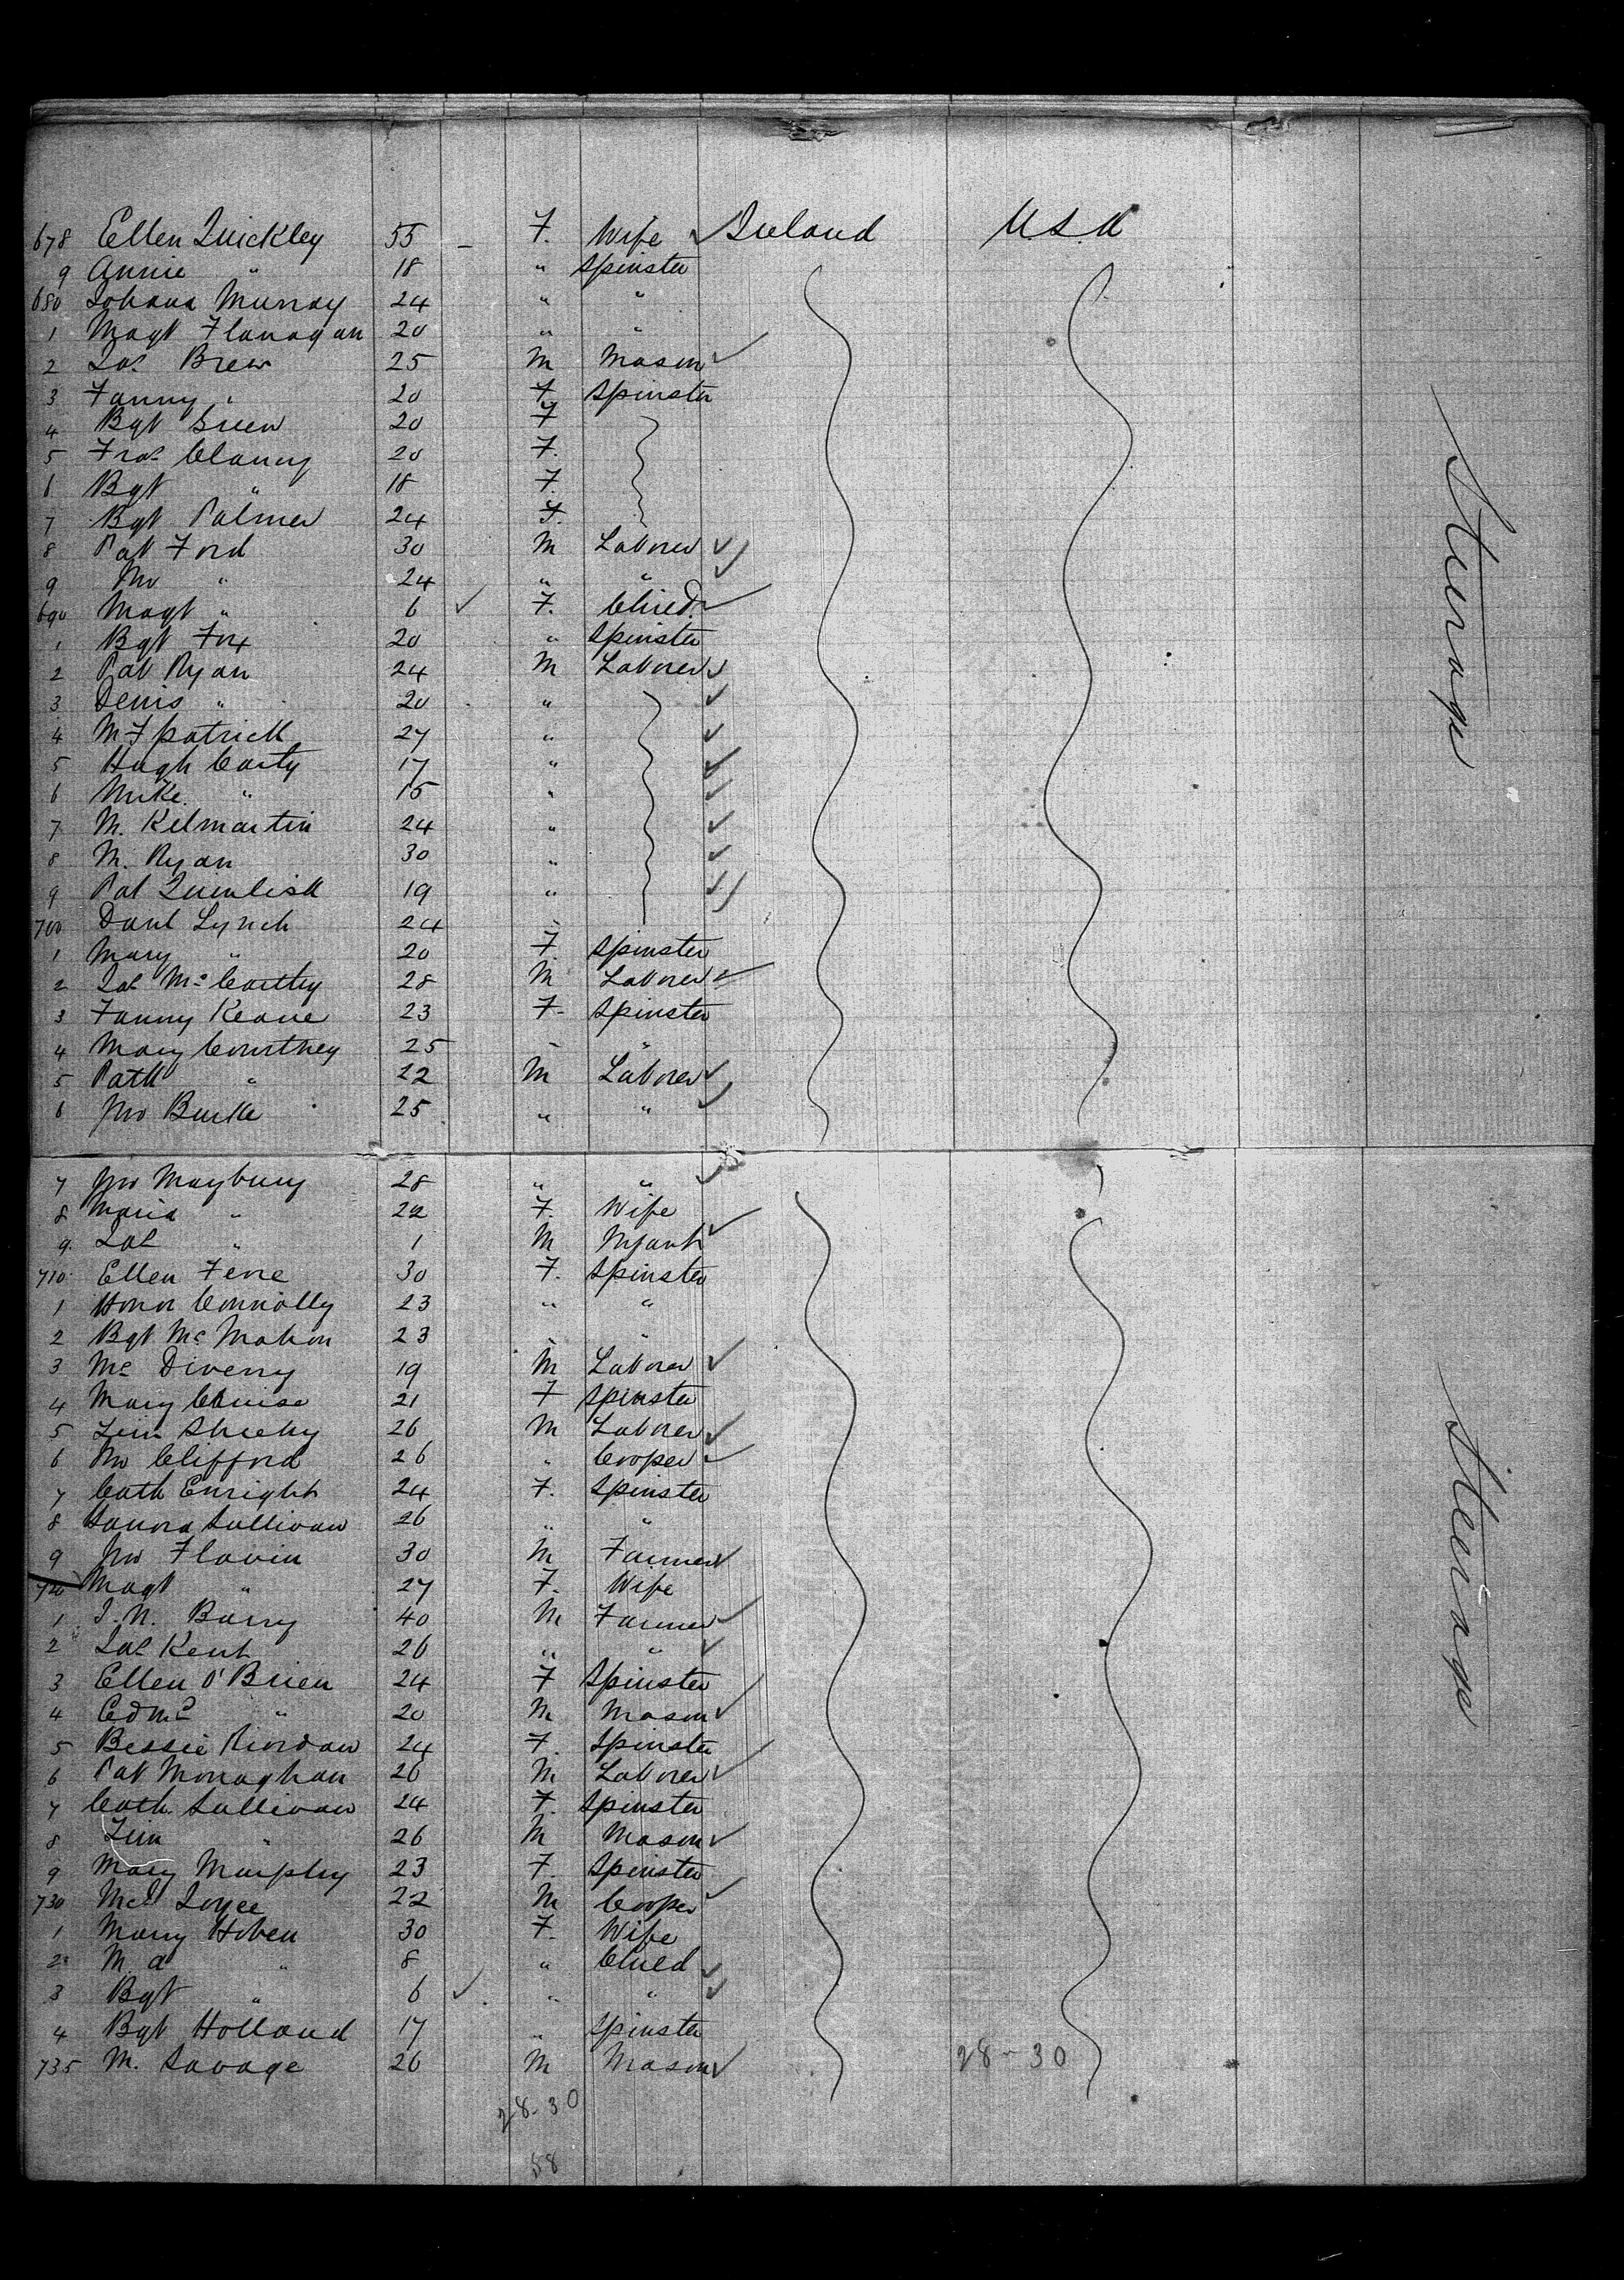 678 Ellen Quickley 55 - F. Wife ✓ Ireland U.S.A
9 Annie " 18 " Spinster
680 Johana Murray 24 " "
1 Magt Flanagan 20 " "
2 Jas Brew 25 M Mason ✓
3 Fanny " 20 F Spinster
4 Bgt Green 20 F
5 Fras Clancy 20 F.
6 Bgt " 18 F.
7 Bgt Palmer 24 F.
8 Pat Ford 30 M Laborer ✓
9 Jno " 24 " " ✓
690 Magt " 6 ✓ F. Child ✓
1 Bgt Fox 20 " Spinster
2 Pat Ryan 24 M Laborer ✓
3 Denis " 20 " ✓
4 M Fpatrick 27 " ✓
5 Hugh Carty 17 " ✓
6 Mike " 15 " ✓
7 M. Kilmartin 24 " ✓
8 M. Ryan 30 " ✓
9 Pat Quinlisk 19 " ✓
700 Danl Lynch 24 "
1 Mary " 20 F. Spinster
2 Jas McCarthy 28 M Laborer ✓
3 Fanny Keane 23 F- Spinster
4 Mary Courtney 25 " "
5 Patk " 22 M Laborer ✓
6 Jno Burke 25 " " ✓
7 Jno Maybury 28 " " ✓
8 Maria " 22 F. Wife
9. Jas " 1 M Infant ✓
710 Ellen Fene 30 F. Spinster
1 Honor Connolly 23 " "
2 Bgt McMahon 23 " "
3 Mc Diveny 19 M Laborer ✓
4 Mary Cruise 21 F Spinster
5 Jim Sheehy 26 M Laborer ✓
6 Jno Clifford 26 " Cooper ✓
7 Cath Enright 24 F. Spinster
8 Hanora Sullivan 26 " "
9 Jno Flavin 30 M Farmer ✓
720 Magt " 27 F. Wife
1 J.N. Barry 40 M Farmer ✓
2 Jas Kent 26 " " ✓
3 Ellen O'Brien 24 F Spinster
4 Edmd " 20 M Mason ✓
5 Bessie Riordan 24 F. Spinster
6 Pat Monaghan 26 M Laborer ✓
7 Cath. Sullivan 24 F. Spinster
8 Jim " 26 M Mason ✓
9 Mary Murphy 23 F. Spinster
730 Mcl Joyce 22 M Cooper ✓
1 Mary Hoben 30 F. Wife
2 M. A " 8 " Child ✓
3 Bgt " 6 ✓ " " ✓
4 Bgt Holland 17 " Spinster
735 M. Savage 26 M Mason ✓ 28-30
28-30
58
Steerage
Steerage